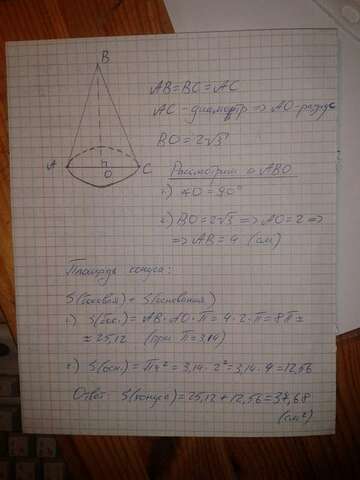 B
A
C
O
AB=BC=AC
AC-диаметр => AO-радиус
BO=2√3
Рассмотрим △ ABO
1) ∠O=90°
2) BO=2√3 => AO=2 =>
=> AB=4 (см)
Площадь конуса:
S(боковая) + S(основания)
1) S(бок.) = AB·AO·π=4·2·π=8π≈
≈25,12 (при π=3,14)
2) S(осн.)=πr²=3,14·2²=3,14·4=12,56
Ответ: S(конуса)=25,12+12,56=37,68
(см²)